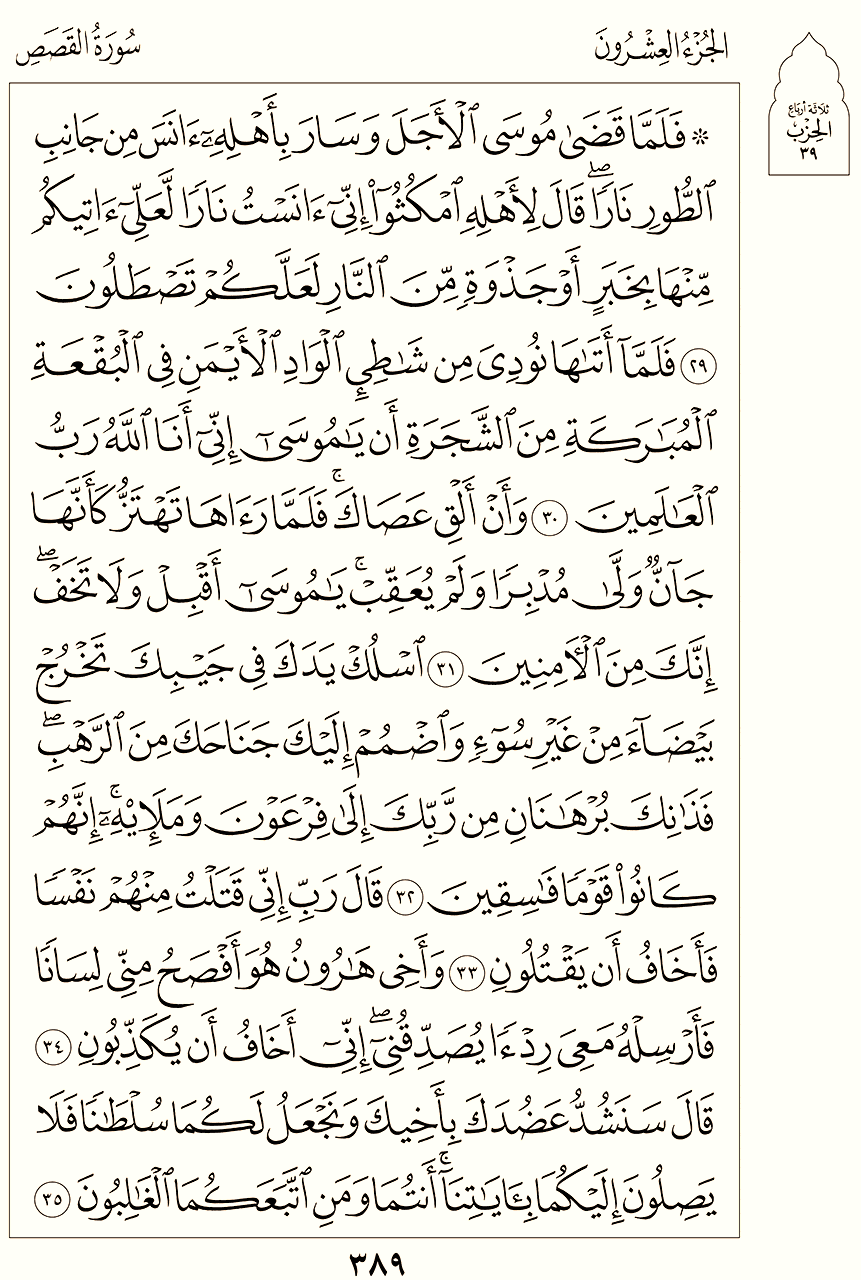 سُورَةُ القَصَصِ
الجُزْءُ العِشْرُونَ
ثلاثة أرباع
الحِزْب
٣٩
۞ فَلَمَّا قَضَىٰ مُوسَى ٱلْأَجَلَ وَسَارَ بِأَهْلِهِۦٓ ءَانَسَ مِن جَانِبِ
ٱلطُّورِ نَارًاۖ قَالَ لِأَهْلِهِ ٱمْكُثُوٓا۟ إِنِّىٓ ءَانَسْتُ نَارًا لَّعَلِّىٓ ءَاتِيكُم
مِّنْهَا بِخَبَرٍ أَوْ جَذْوَةٍ مِّنَ ٱلنَّارِ لَعَلَّكُمْ تَصْطَلُونَ
٢٩ فَلَمَّآ أَتَىٰهَا نُودِىَ مِن شَٰطِئِ ٱلْوَادِ ٱلْأَيْمَنِ فِى ٱلْبُقْعَةِ
ٱلْمُبَٰرَكَةِ مِنَ ٱلشَّجَرَةِ أَن يَٰمُوسَىٰٓ إِنِّىٓ أَنَا ٱللَّهُ رَبُّ
ٱلْعَٰلَمِينَ ٣٠ وَأَنْ أَلْقِ عَصَاكَۚ فَلَمَّا رَءَاهَا تَهْتَزُّ كَأَنَّهَا
جَآنٌّ وَلَّىٰ مُدْبِرًا وَلَمْ يُعَقِّبْۚ يَٰمُوسَىٰٓ أَقْبِلْ وَلَا تَخَفْۖ
إِنَّكَ مِنَ ٱلْءَامِنِينَ ٣١ ٱسْلُكْ يَدَكَ فِى جَيْبِكَ تَخْرُجْ
بَيْضَآءَ مِنْ غَيْرِ سُوٓءٍ وَٱضْمُمْ إِلَيْكَ جَنَاحَكَ مِنَ ٱلرَّهْبِۖ
فَذَٰنِكَ بُرْهَٰنَانِ مِن رَّبِّكَ إِلَىٰ فِرْعَوْنَ وَمَلَإِي۟هِۦٓۚ إِنَّهُمْ
كَانُوا۟ قَوْمًا فَٰسِقِينَ ٣٢ قَالَ رَبِّ إِنِّى قَتَلْتُ مِنْهُمْ نَفْسًا
فَأَخَافُ أَن يَقْتُلُونِ ٣٣ وَأَخِى هَٰرُونُ هُوَ أَفْصَحُ مِنِّى لِسَانًا
فَأَرْسِلْهُ مَعِىَ رِدْءًا يُصَدِّقُنِىٓۖ إِنِّىٓ أَخَافُ أَن يُكَذِّبُونِ ٣٤
قَالَ سَنَشُدُّ عَضُدَكَ بِأَخِيكَ وَنَجْعَلُ لَكُمَا سُلْطَٰنًا فَلَا
يَصِلُونَ إِلَيْكُمَا بِـَٔايَٰتِنَآۚ أَنتُمَا وَمَنِ ٱتَّبَعَكُمَا ٱلْغَٰلِبُونَ ٣٥
٣٨٩